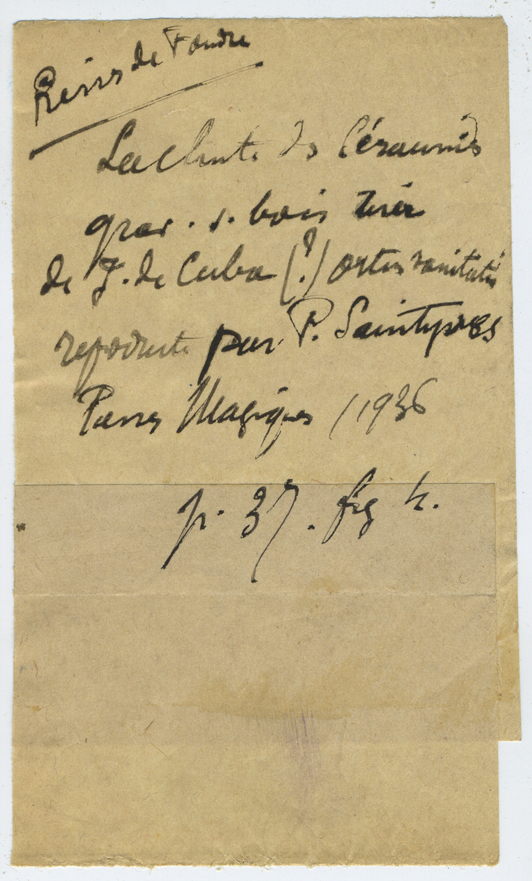 Pierres de Foudre
La chute des Céraunies
grav. s. bois tirée
de J. de Cuba (?) ortus sanitatis
reproduite par P. Saintyves
Pierres Magiques / 1936
p. 37. fig 4.